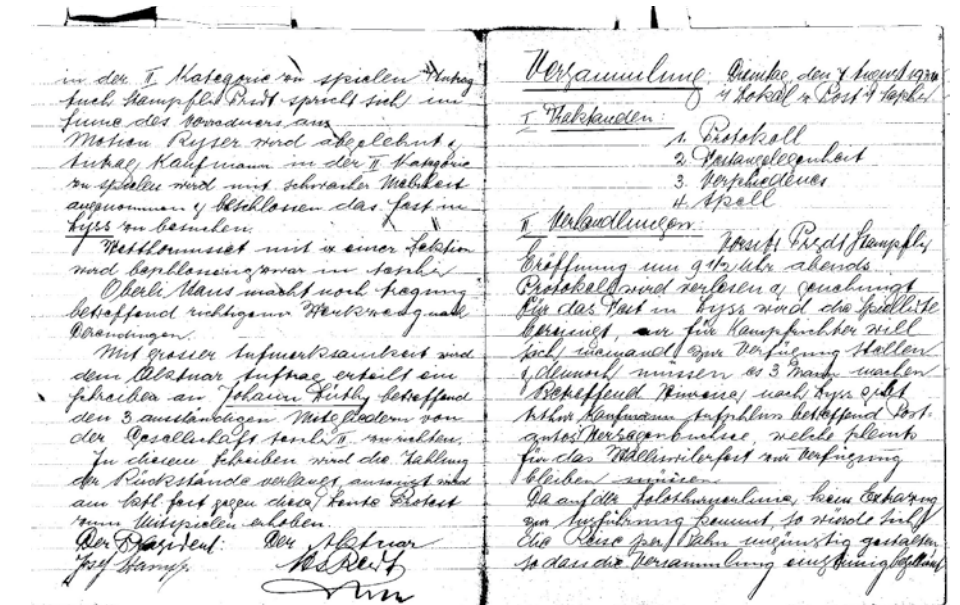 in der II Kategorie zu spielen Antrag
auch Stampfli Prsdt spricht sich im
Sinne des Vorredners aus
Motion Ryser wird abgelehnt &
Antrag Kaufmann in der II Kategorie
zu spielen wird mit schwacher Mehrheit
angenommen & beschlossen das Fest in
Lyss zu besuchen.
Wetthornusset mit einer Sektion
wird beschlossen, zwar in
Oberli Hans macht noch Anregung
betreffend richtigem
Derendingen.
Mit grosser Aufmerksamkeit wird
dem Aktuar Auftrag erteilt ein
Schreiben an Johann Lüthy betreffend
den 3 ausständigen Mitgliedern von
der Gesellschaft II. zu richten.
In diesem Schreiben wird die Zahlung
der Rückstände verlangt, ansonst wird
am Fest gegen diese Leute Protest
zum Mitspielen erhoben.
Der Präsident: Der Aktuar
Josef Stampfli
Versammlung, Dienstag, den 7 August
Lokal z. Post
I Traktanden:
1. Protokoll
2. Festangelegenheit
3. Verschiedenes
4. Appell
II Verhandlungen:
Vorsitz Prsdt Stampfli
Eröffnung um 9 1/2 Uhr abends
Protokoll wird verlesen & genehmigt
Für das Fest in Lyss wird die Spielliste
bereinigt, nur für Kampfrichter will
sich niemand zur Verfügung stellen
& dennoch müssen es 3 Mann machen
Betreffend Hinreise nach Lyss gibt
Arthur Kaufmann Aufschluss betreffend Post-
autos Herzogenbuchsee, welche
für das zur Verfügung
bleiben müssen
Da auf der Solothurnerlinie kein Extrazug
zur Ausführung kommt, so würde sich
die Reise per Bahn ungünstig gestalten
so dass die Versammlung einstimmig